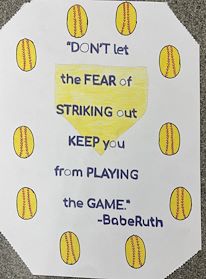 "DON'T let
the FEAR of
STRIKING out
KEEP you
from PLAYING
the GAME."
-BabeRuth